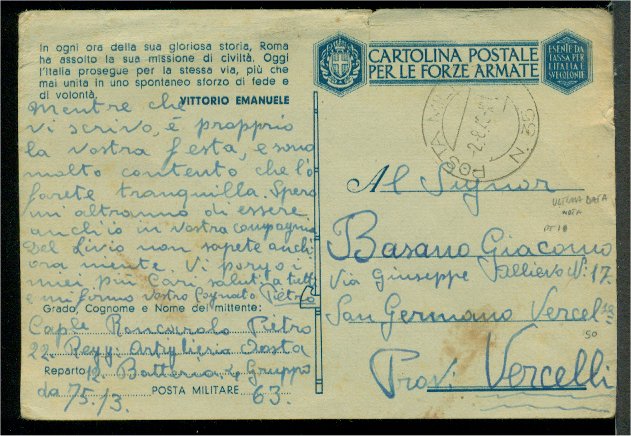 In ogni ora della sua gloriosa storia, Roma
ha assolto la sua missione di civiltà. Oggi
l'Italia prosegue per la stessa via, più che
mai unita in uno spontaneo sforzo di fede e
di volontà.
VITTORIO EMANUELE
mentre che
vi scrivo, é prapprio
la vostra festa, e sono
molto contento che l'
farete tranquilla. Spero
mi altranno di essere
anch'io in vostra compagnia
Del Livio non sapete anch
ora niente. Vi porgo i
miei più Cari saluti a tutti
e mi firmo vostro Cognato Pietro
Grado, Cognome e Nome del mittente:
Capl. Roncarolo Pietro
22. Regg. Artiglieria Aosta
Reparto 12. Batteria, 4 Gruppo
da 75/13.
POSTA MILITARE 63.
CARTOLINA POSTALE
PER LE FORZE ARMATE
ESENTE DA
TASSA PER
L'ITALIA E
SUE COLONIE
POSTA MILITARE
N. 55
Al Signor
ULTIMA DATA
NOTA
PT 10
Basano Giacomo
Via Giuseppe N. 17.
San Germano Vercel
50
Prov. Vercelli